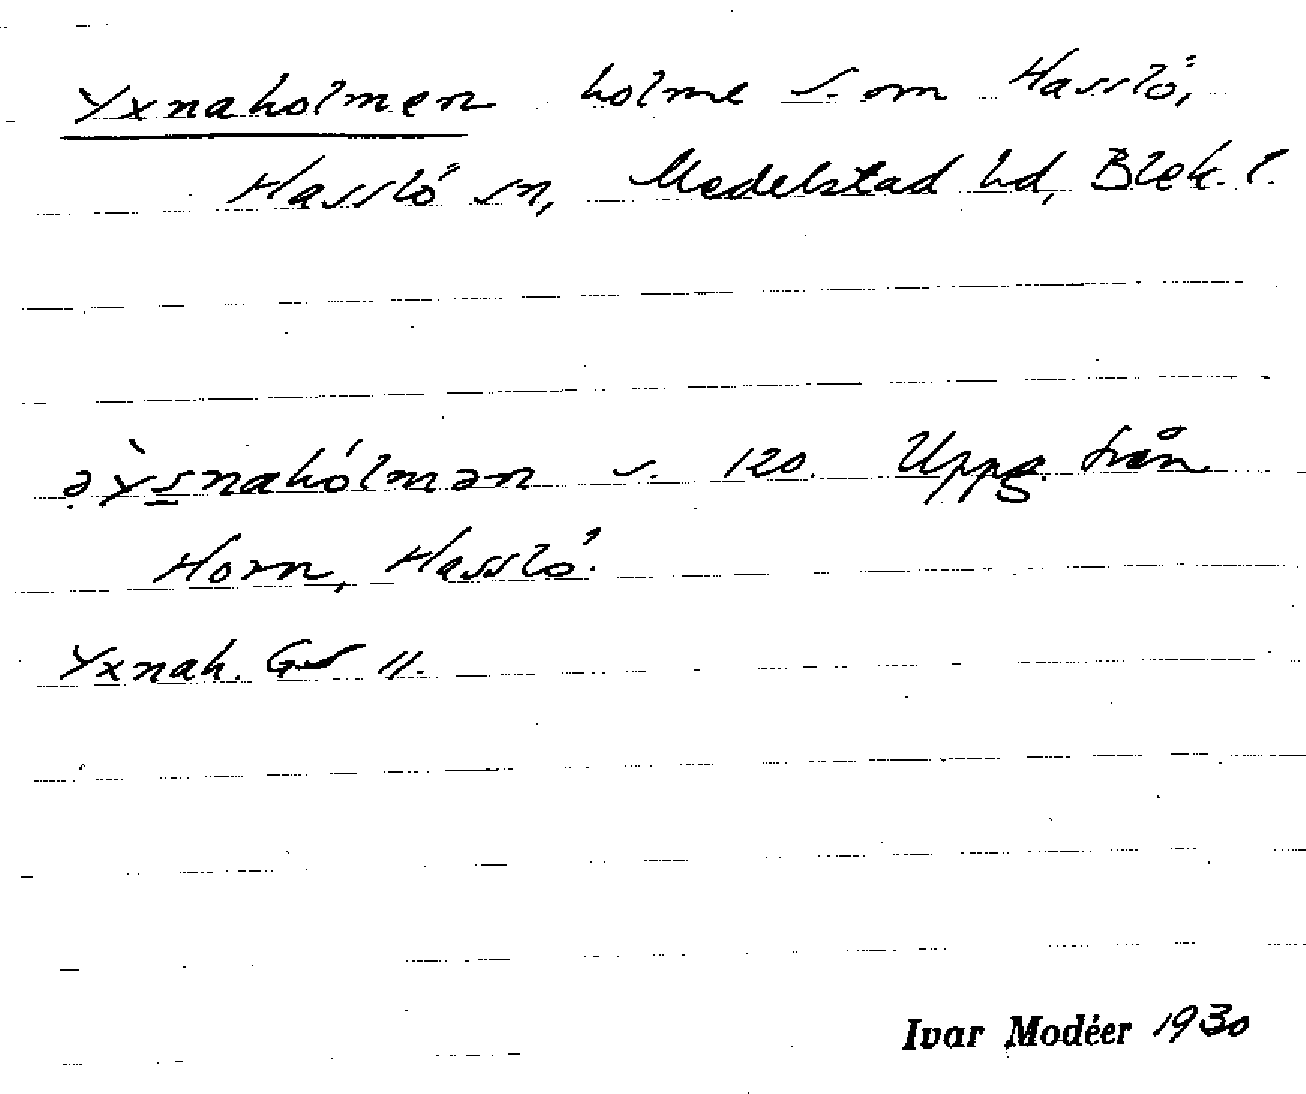 Yxnaholmen holme s. om Hasslö,
Hasslö sn, Medelstad hd, Blek. l.
s. 120. Uppg. från
Horn, Hasslö.
Yxnah. GS 11.
Ivar Modéer 1930